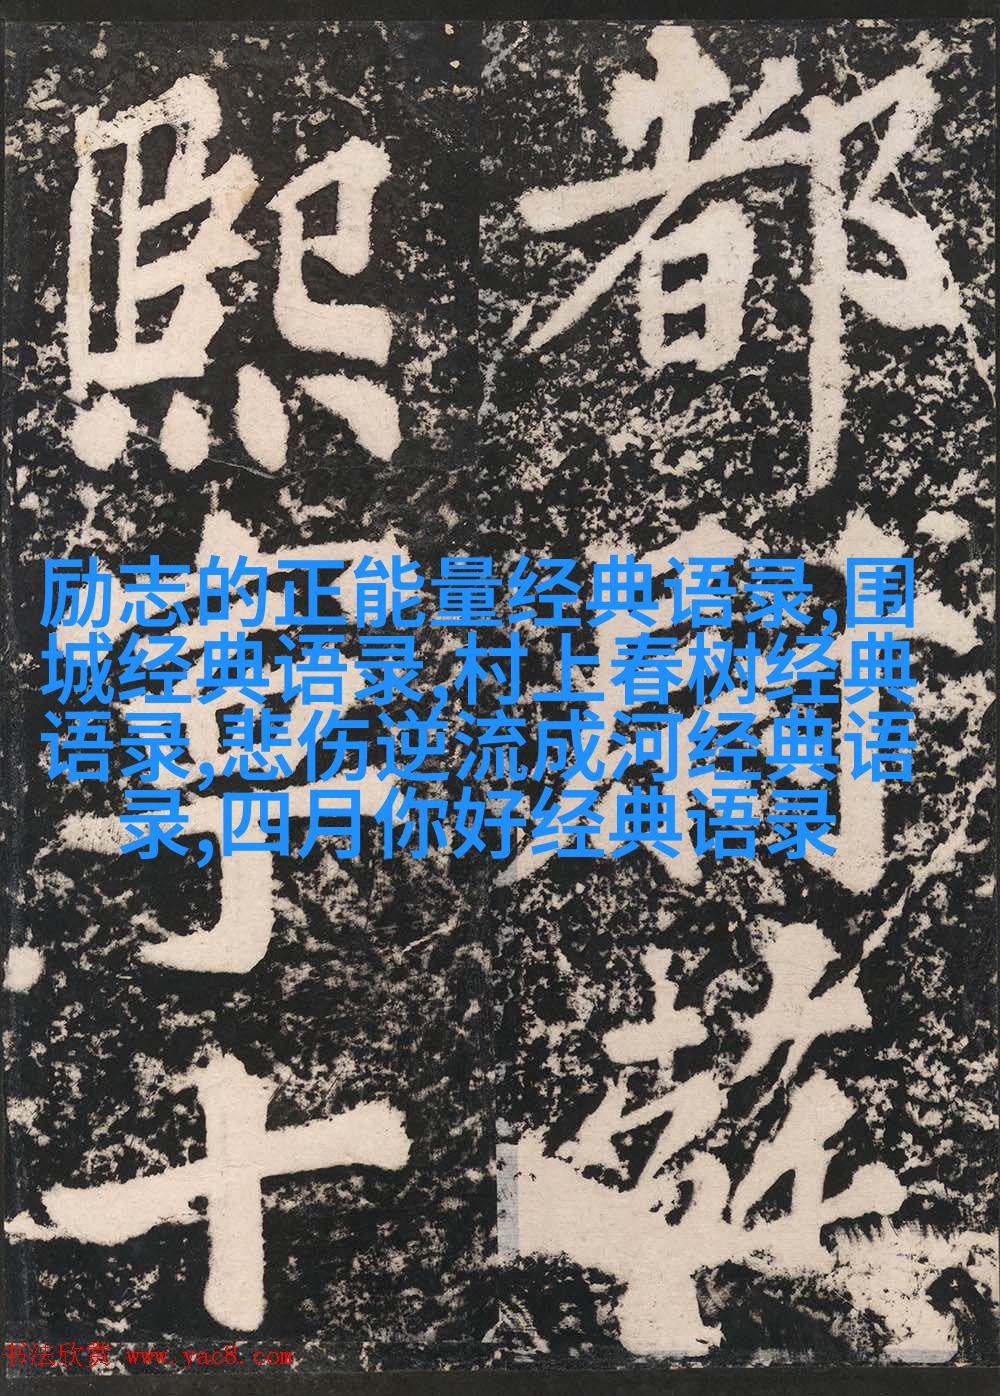 都
熙
十
励志的正能量经典语录,围
城经典语录,村上春树经典
语录,悲伤逆流成河经典语
录,四月你好经典语录
书法欣赏 www.yac8.com